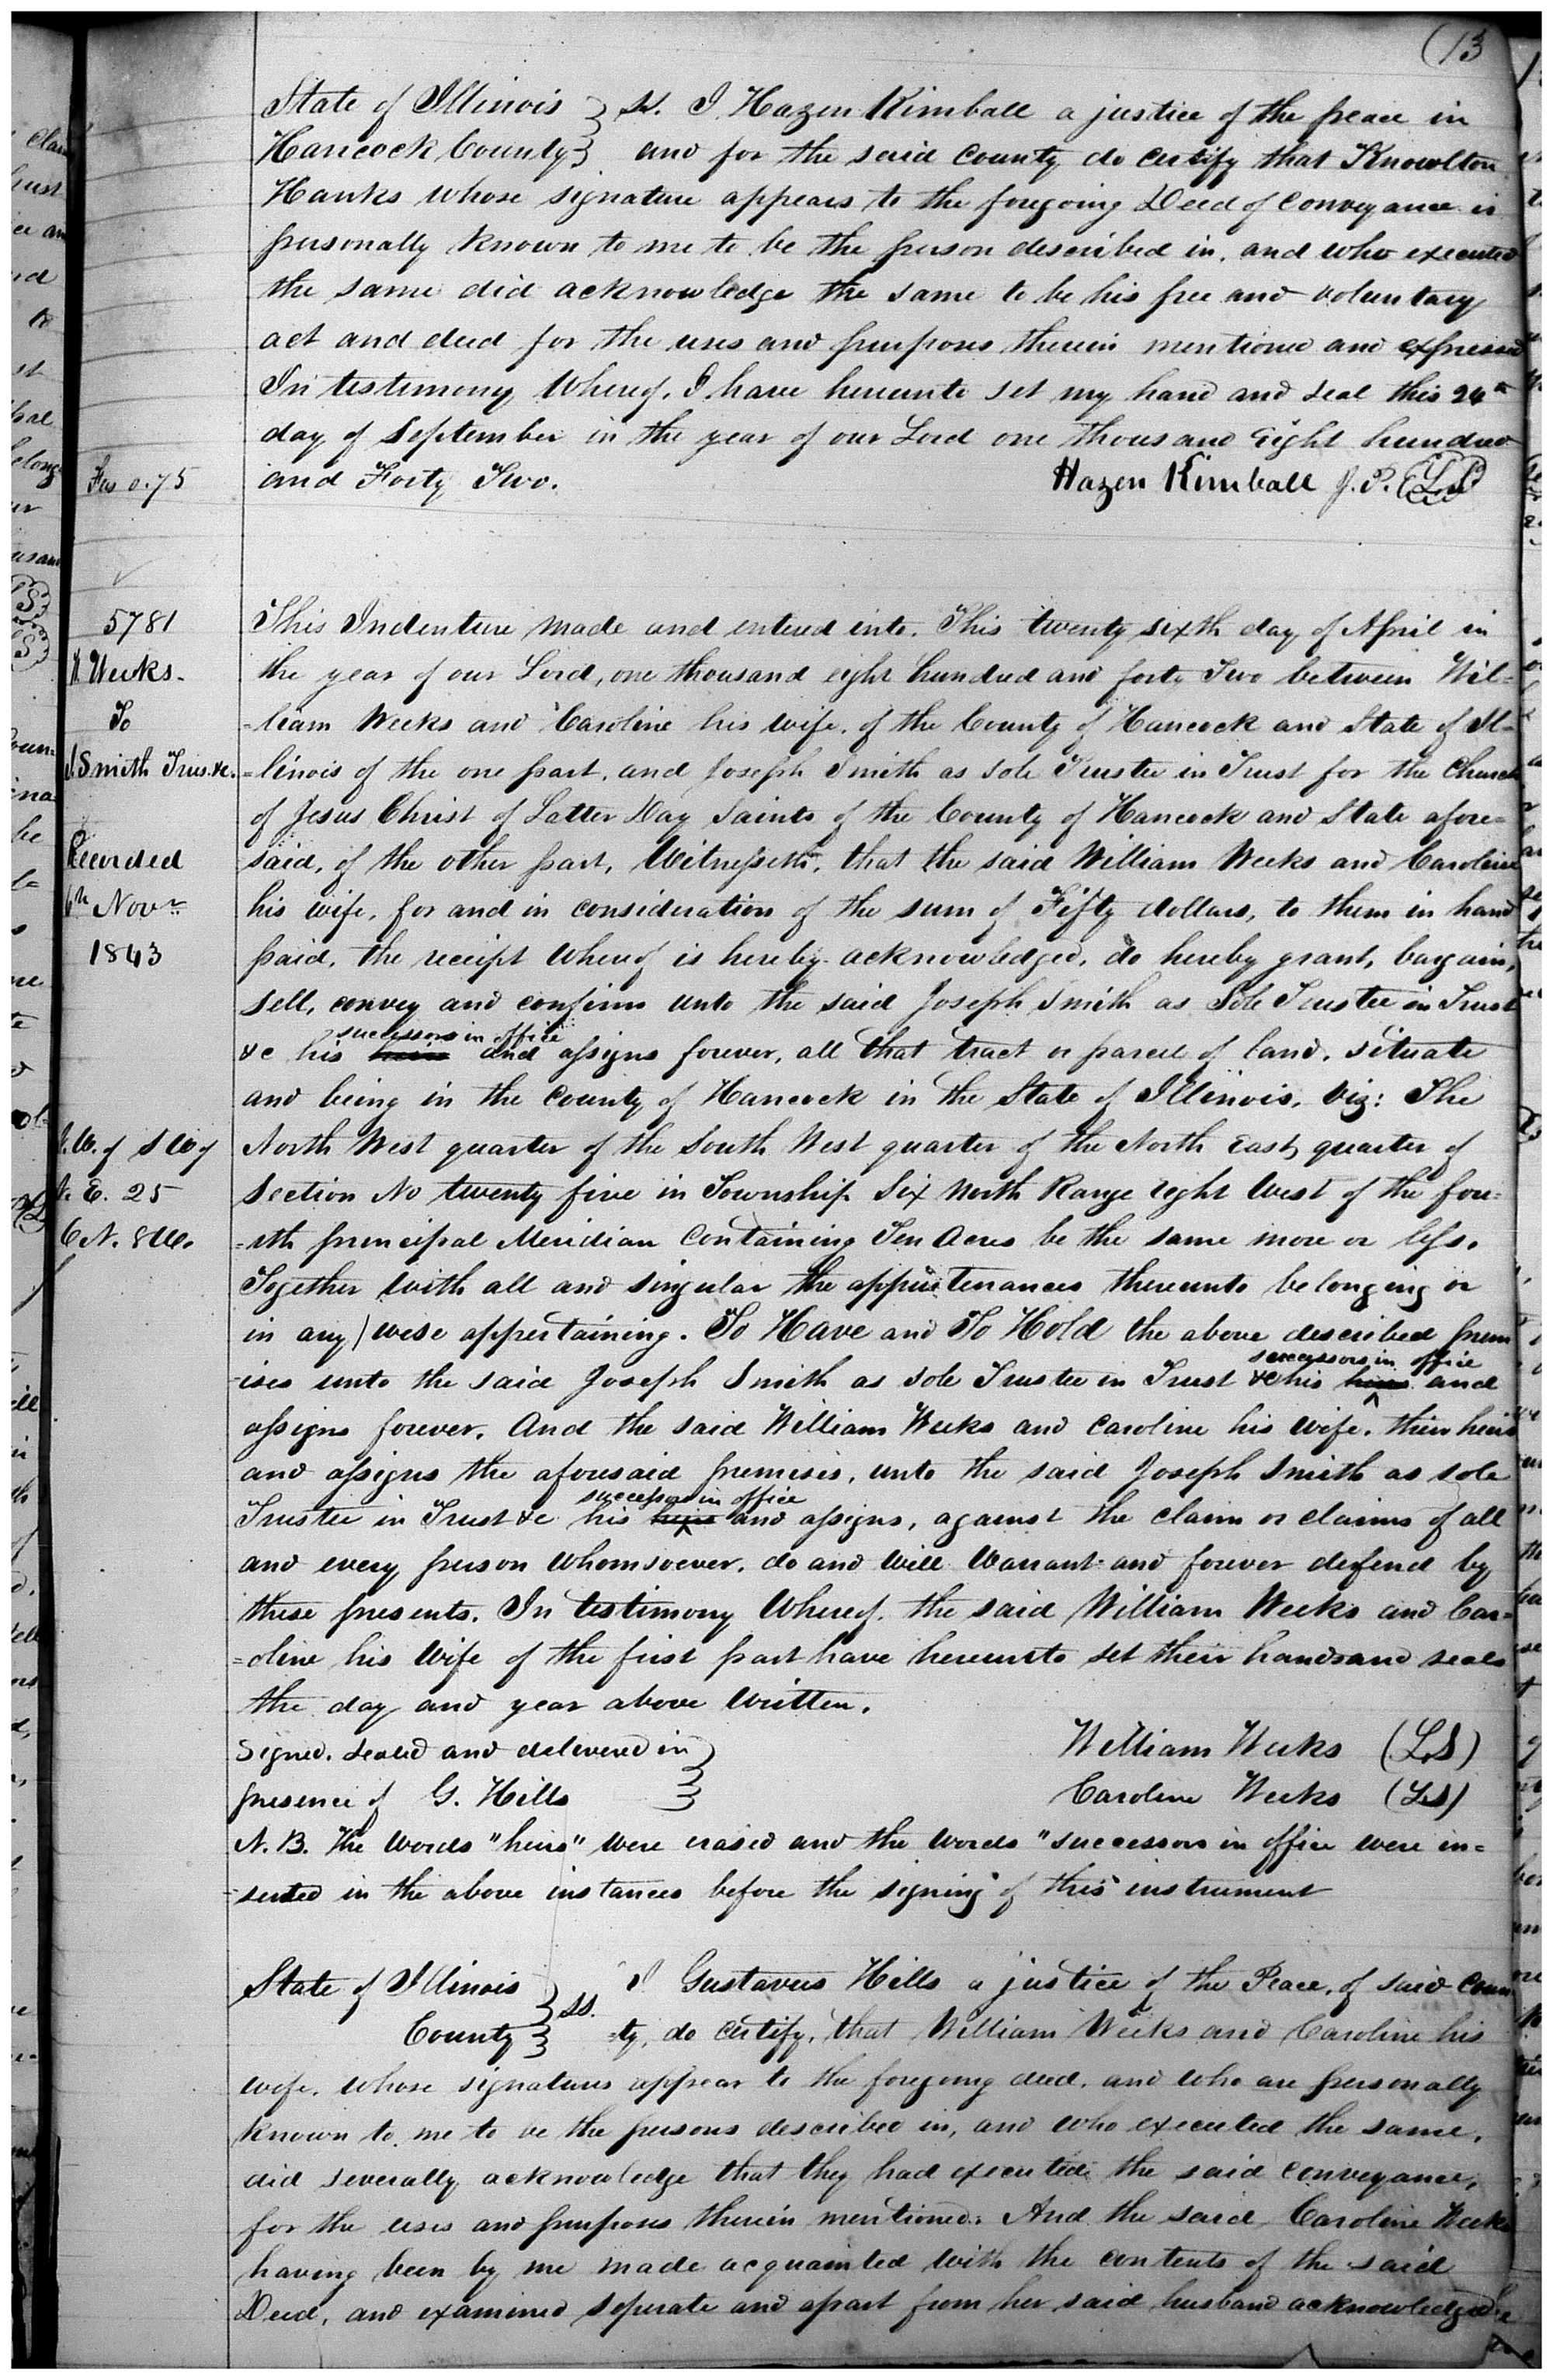 (13
State of Illinois } ss. I Hazen Kimball a justice of the peace in
Hancock County } and for the said county do certify that Knowlton
Hanks whose signature appears to the foregoing Deed of Conveyance is
personally known to me to be the person described in, and who executed
the same did acknowledge the same to be his free and voluntary
act and deed for the uses and purposes therein mentioned and expressed
In testimony Whereof, I have hereunto set my hand and seal this 24th
day of September in the year of our Lord one thousand eight hundred
Fees 0.75
and Forty Two.
Hazen Kimball J.P. (LS)
5781
W. Weeks.
To
J. Smith Trus. &c.
Recorded
6th Novr
1843
This Indenture made and entered into. This twenty sixth day of April in
the year of our Lord, one thousand eight hundred and forty Two between Wil=
=liam Weeks and Caroline his wife, of the County of Hancock and State of Il=
=linois of the one part, and Joseph Smith as sole Trustee in Trust for the Church
of Jesus Christ of Latter Day Saints of the County of Hancock and State afore=
said, of the other part, Witnesseth, that the said William Weeks and Caroline
his wife, for and in consideration of the sum of Fifty dollars, to them in hand
paid, the receipt whereof is hereby acknowledged, do hereby grant, bargain,
sell, convey and confirm unto the said Joseph Smith as Sole Trustee in Trust
successors in office
&c his heirs and assigns forever, all that tract or parcel of land, situate
and being in the County of Hancock in the State of Illinois, Viz: The
N.W. of S W of
N. E. 25
6 N. 8 W.
North West quarter of the South West quarter of the North east quarter of
section No twenty five in Township Six North Range eight West of the fou=
=rth principal Meridian Containing Ten Acres be the same more or less.
Together with all and singular the appurtenances thereunto belonging or
in any wise appertaining. To Have and To Hold the above described prem
successors in office
=ises unto the said Joseph Smith as sole Trustee in Trust &c his heirs and
assigns forever. And the said William Weeks and Caroline his wife, their heirs
and assigns the aforesaid premises, unto the said Joseph Smith as sole
successors in office
Trustee in Trust &c his heirs and assigns, against the claim or claims of all
and every person whomsoever, do and will Warrant and forever defend by
these presents. In testimony Whereof, the said William Weeks and Car=
=oline his Wife of the first part have hereunto set their hands and seals
the day and year above Written.
Signed, sealed and delivered in }
presence of G. Hills }
William Weeks (LS)
Caroline Weeks (LS)
N. B. The words "heirs" were erased and the words "successors in office were in=
=serted in the above instances before the signing of this instrument
State of Illinois } ss. I Gustavus Hills a justice of the Peace, of said Coun
County } =ty, do certify, that William Weeks and Caroline his
wife, whose signatures appear to the foregoing deed, and who are personally
known to me to be the persons described in, and who executed the same,
did severally acknowledge that they had executed the said conveyance,
for the uses and purposes therein mentioned: And the said Caroline Weeks
having been by me made acquainted with the contents of the said
Deed, and examined seperate and apart from her said husband acknowledged